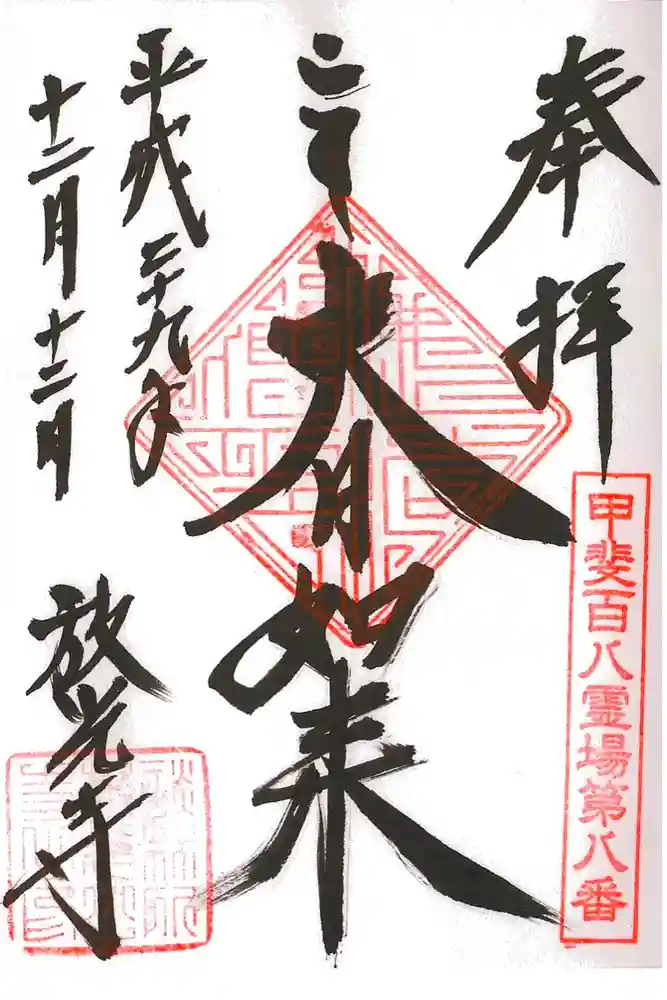 奉拝
甲斐百八霊場第八番
大日如来
平成二十九年
十二月十二日
放光寺